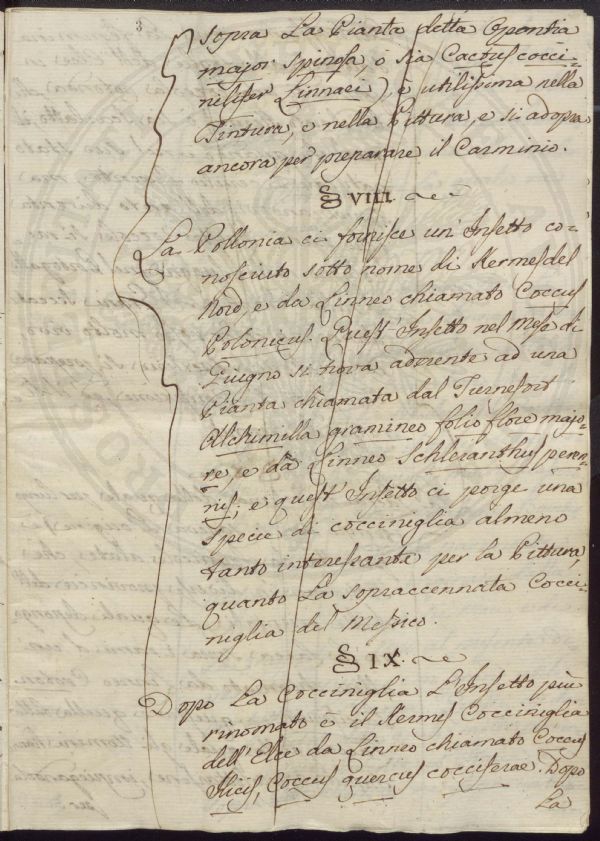 3
sopra La Pianta detta Opontia
major spinosa, o sia Cactus cocci-
nilifer Linnaei) è utilissima nella
Tintura, e nella Pittura, e si adopra
ancora per preparare il Carminio.
§ VIII.
La Pollonia ci fornisce un' Insetto co-
nosciuto sotto nome di Kermes del
Nord, e da Linneo chiamato Coccus
Polonicus. Quest' Insetto nel Mese di
Giugno si trova aderente ad una
Pianta chiamata dal Turnefort
Alchimilla gramineo folio flore majo-
re, e da Linneo Schleranthus peren-
nis; e quest' Insetto ci porge una
specie di cocciniglia almeno
tanto interessante per la Pittura,
quanto La sopraccennata Cocci-
niglia del Messico.
§ IX.
Dopo La Cocciniglia L'Insetto più
rinomato è il Kermes Cocciniglia
dell' Elce da Linneo chiamato Coccus
Ilicis, Coccus quercus cocciferae. Dopo
La